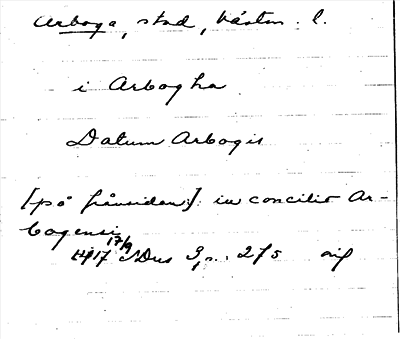 Arboga, stad, Västm. l.
i Arbogha
Datum Arbogis
[på frånsidan:] in concilio Ar-
bogensi
1417 17/9 SDns 3, s. 275 orig